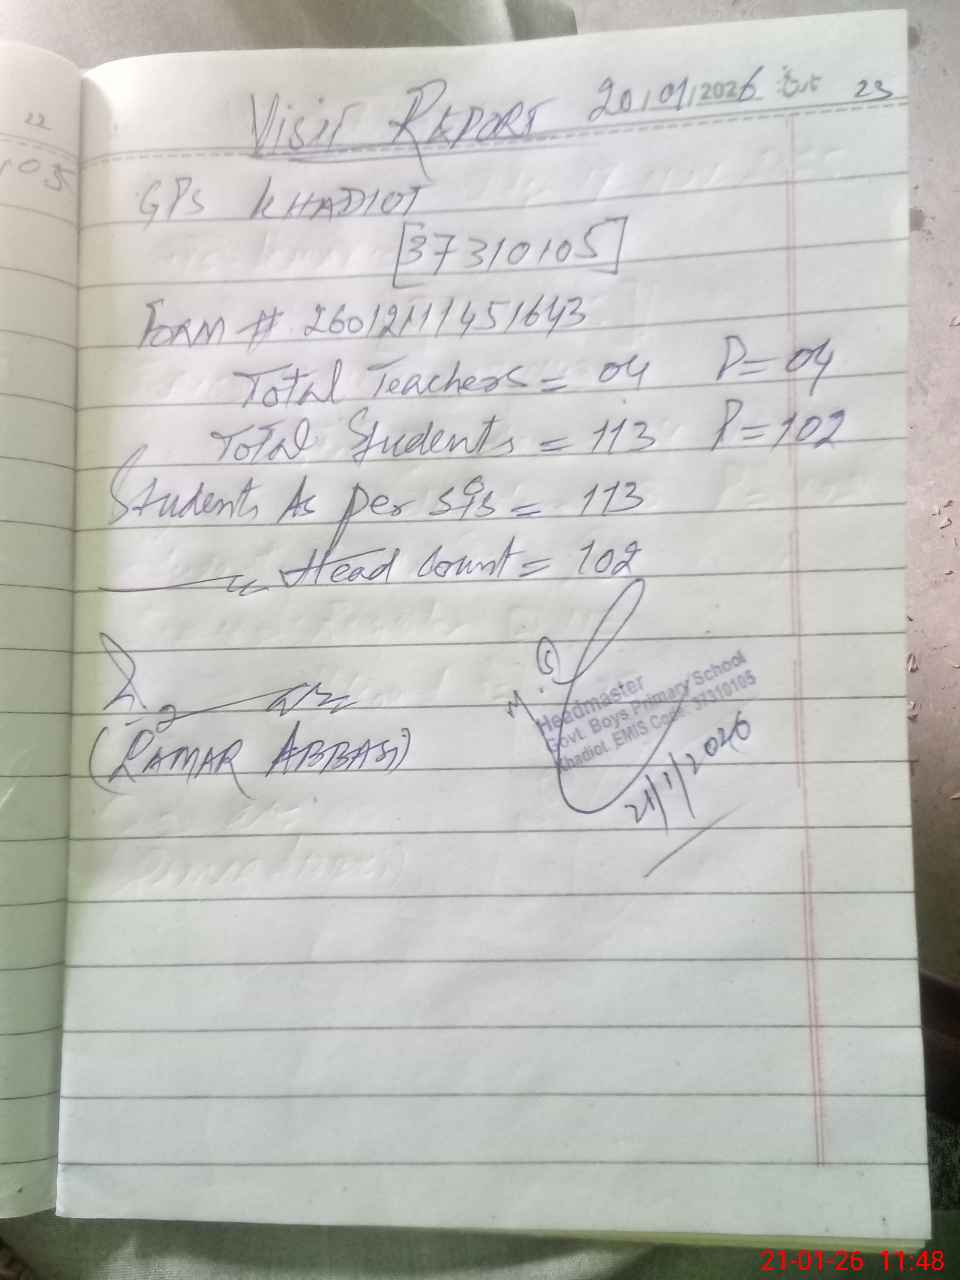 22
105
Visit REPORT 20/01/2026 23
GPS KHADIOT
[37310105]
FORM # 260121111451643
Total Teachers = 04 P=04
Total Students = 113 P=102
Students As per SIS = 113
Head Count = 102
(QAMAR ABBASI)
Headmaster
Govt. Boys Primary School
Khadiot. EMIS Code: 37310105
21/1/2026
21-01-26 11:48